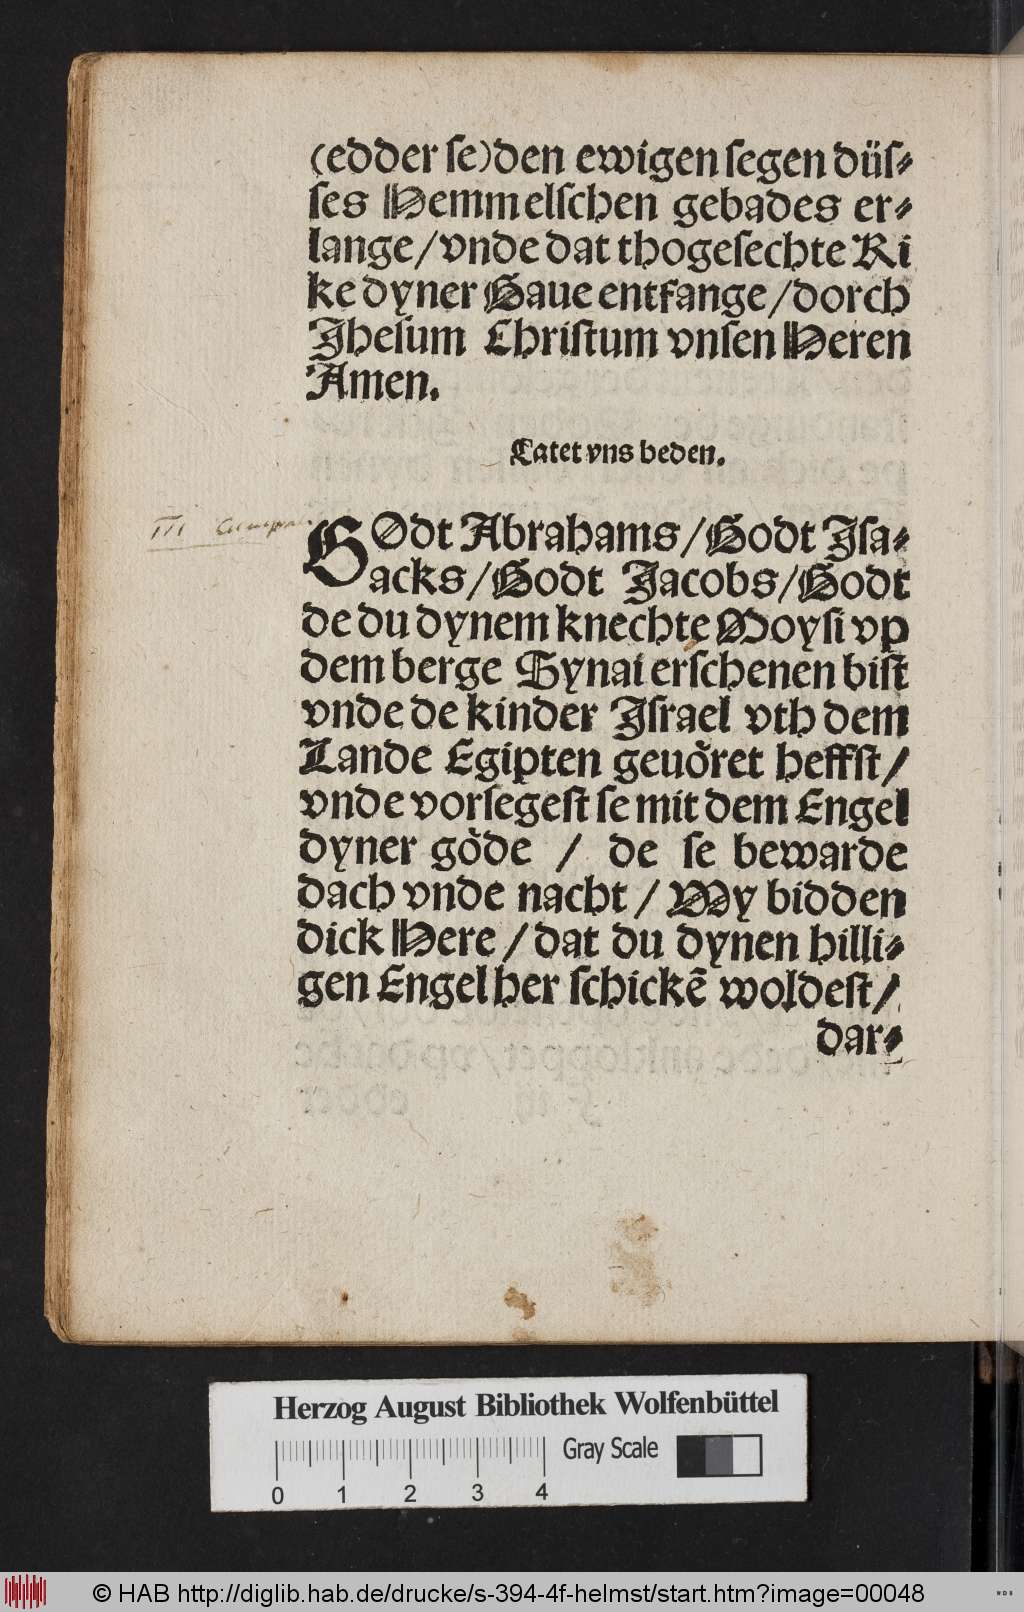 (edder ſe) den ewigen ſegen düſ⸗
ſes Hemmelſchen gebades er⸗
lange / vnde dat thogeſechte Ri
ke dyner Gaue entfange / dorch
Jheſum Chriſtum vnſen Heren
Amen.
Latet vns beden.
GOdt Abrahams / Godt Jſa⸗
acks / Godt Jacobs / Godt
de du dynem knechte Moyſi vp
dem berge Synai erſchenen biſt
vnde de kinder Jſrael vth dem
Lande Egipten geuoͤret heffſt /
vnde vorſegeſt ſe mit dem Engel
dyner goͤde / de ſe bewarde
dach vnde nacht / Wy bidden
dick Here / dat du dynen hilli⸗
gen Engel her ſchickē woldeſt /
dar⸗
Herzog August Bibliothek Wolfenbüttel
Gray Scale
0 1 2 3 4
© HAB http://diglib.hab.de/drucke/s-394-4f-helmst/start.htm?image=00048